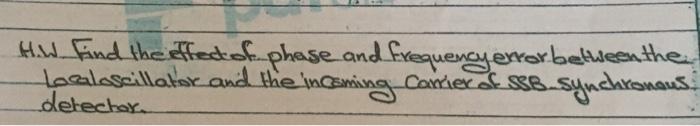 H.W Find the effect of phase and frequency error between the
Local oscillator and the incoming Carrier of SSB synchronous
detector.